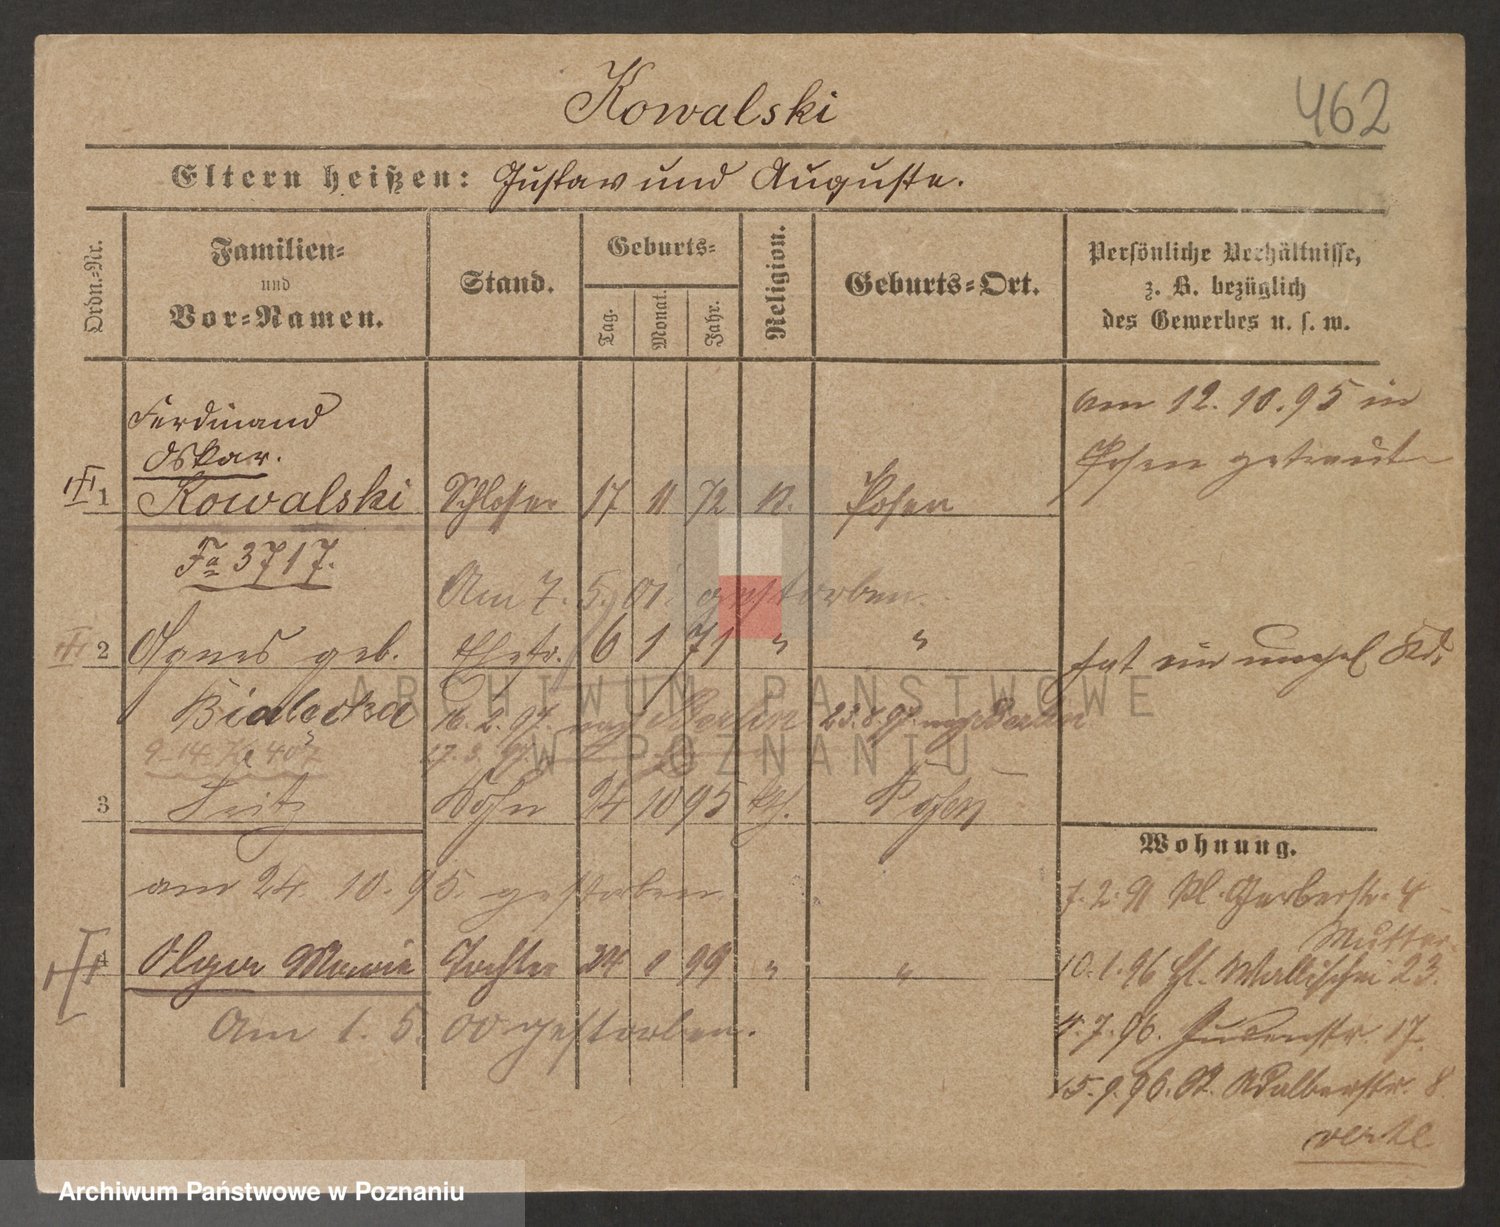 Kowalski
462
Eltern heißen: Gustav und Auguste.
Ordn.-Nr.
Familien-
und
Vor-Namen.
Stand.
Geburts-
Tag.
Monat.
Jahr.
Religion.
Geburts-Ort.
Persönliche Verhältnisse,
z. B. bezüglich
des Gewerbes u. s. w.
am 12. 10. 95 in
Posen getraut
Ferdinand
Oskar.
1 Kowalski Schlosser 17 11 72 Posen
Fa 3717.
Am 7. 5. 01. gestorben.
2 Agnes geb. Ehefr. 6 1 71 " "
hat ein unehel Kd.
Bialecka 16. 2. 97. nach Berlin 23.8.97. nach Berlin
3 Fritz Sohn 24 10 95 kth. Posen
am 24. 10. 95. gestorben
4 Olga Marie Tochter 24 99 " "
Am 1. 5. 00 gestorben.
Wohnung.
7. 2. 91 Kl. Gerberstr. 4
Mutter
10. 1. 96 Wallischei 23.
7. 96. Judenstr. 17.
15. 9. 96. St. Adalbertstr. 8.
ARCHIWUM PAŃSTWOWE
W POZNANIU
Archiwum Państwowe w Poznaniu